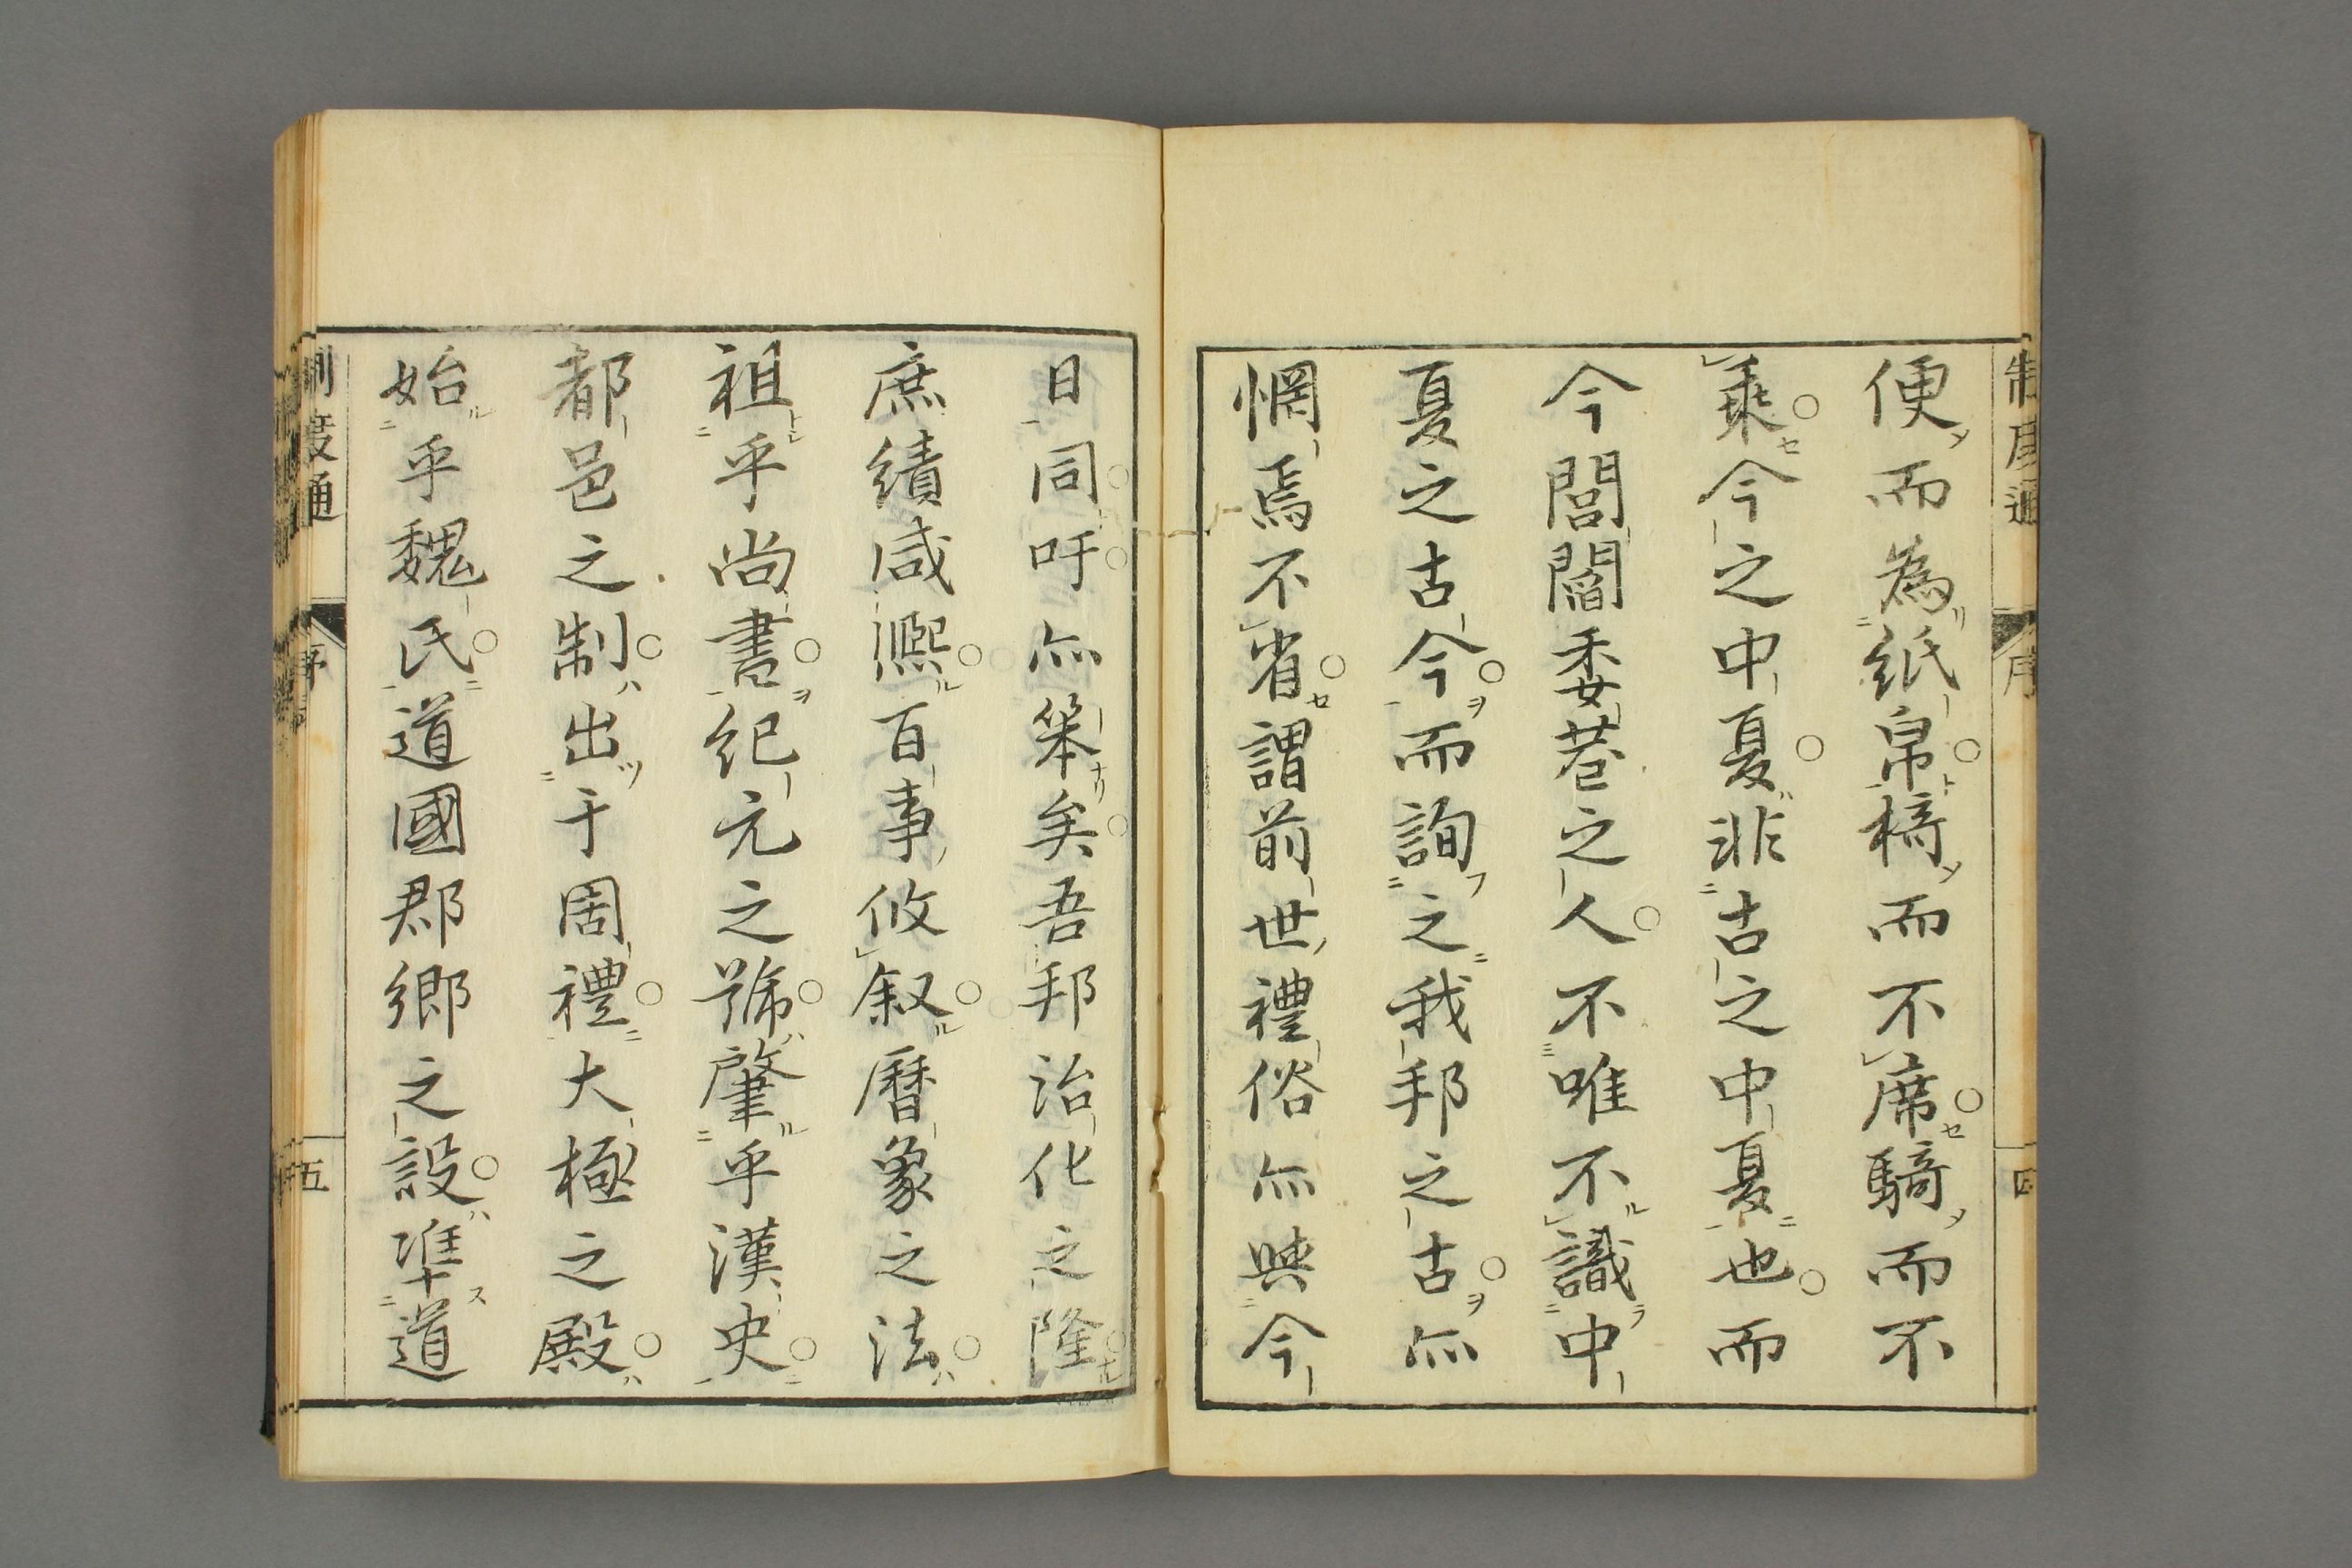 便而為紙帛椅而不席騎而不
乗今之中夏非古之中夏也而
今閭閻委巷之人不唯不識中
夏之古今而詢之我邦之古亦
惘焉不省謂前世禮俗亦與今
日同吁亦笨矣吾邦治化之隆
庶績咸熈百事攸叙暦象之法
祖乎尚書紀元之號肇乎漢史
都邑之制出于周禮大極之殿
始乎魏氏道國郡郷之設準道
制度通
序
五